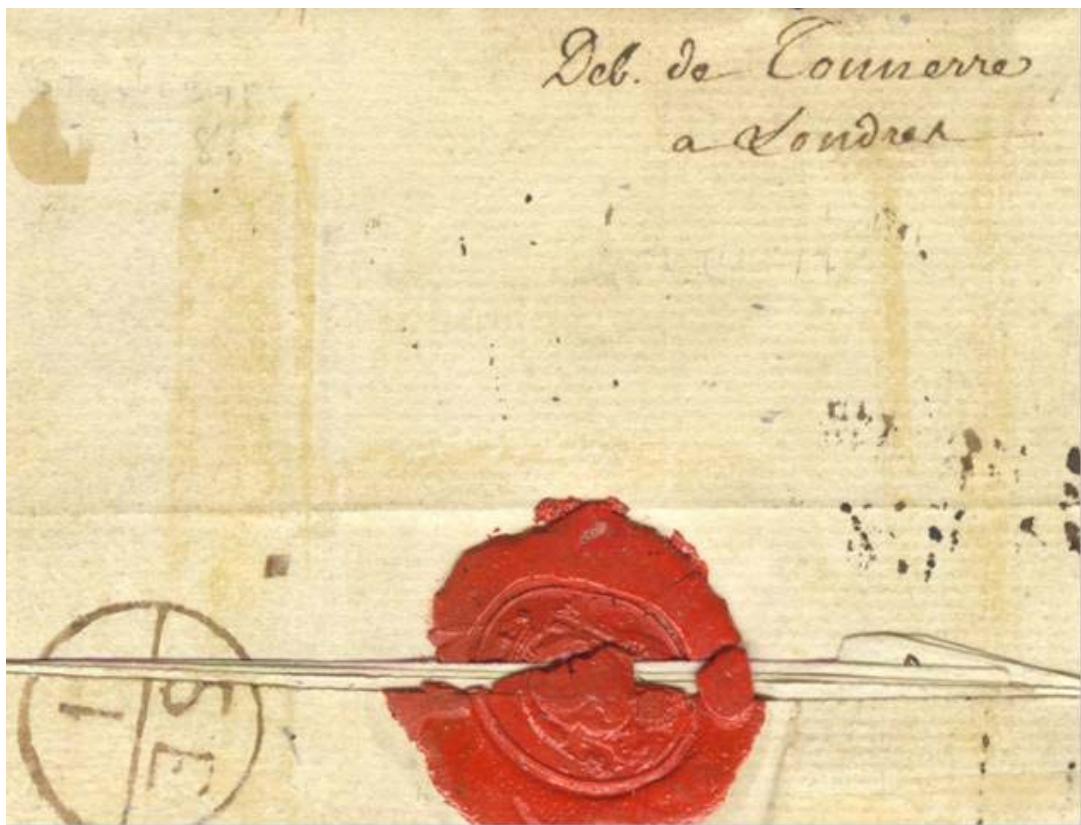 Deb. de Tonnerre
a Londres
1
SE